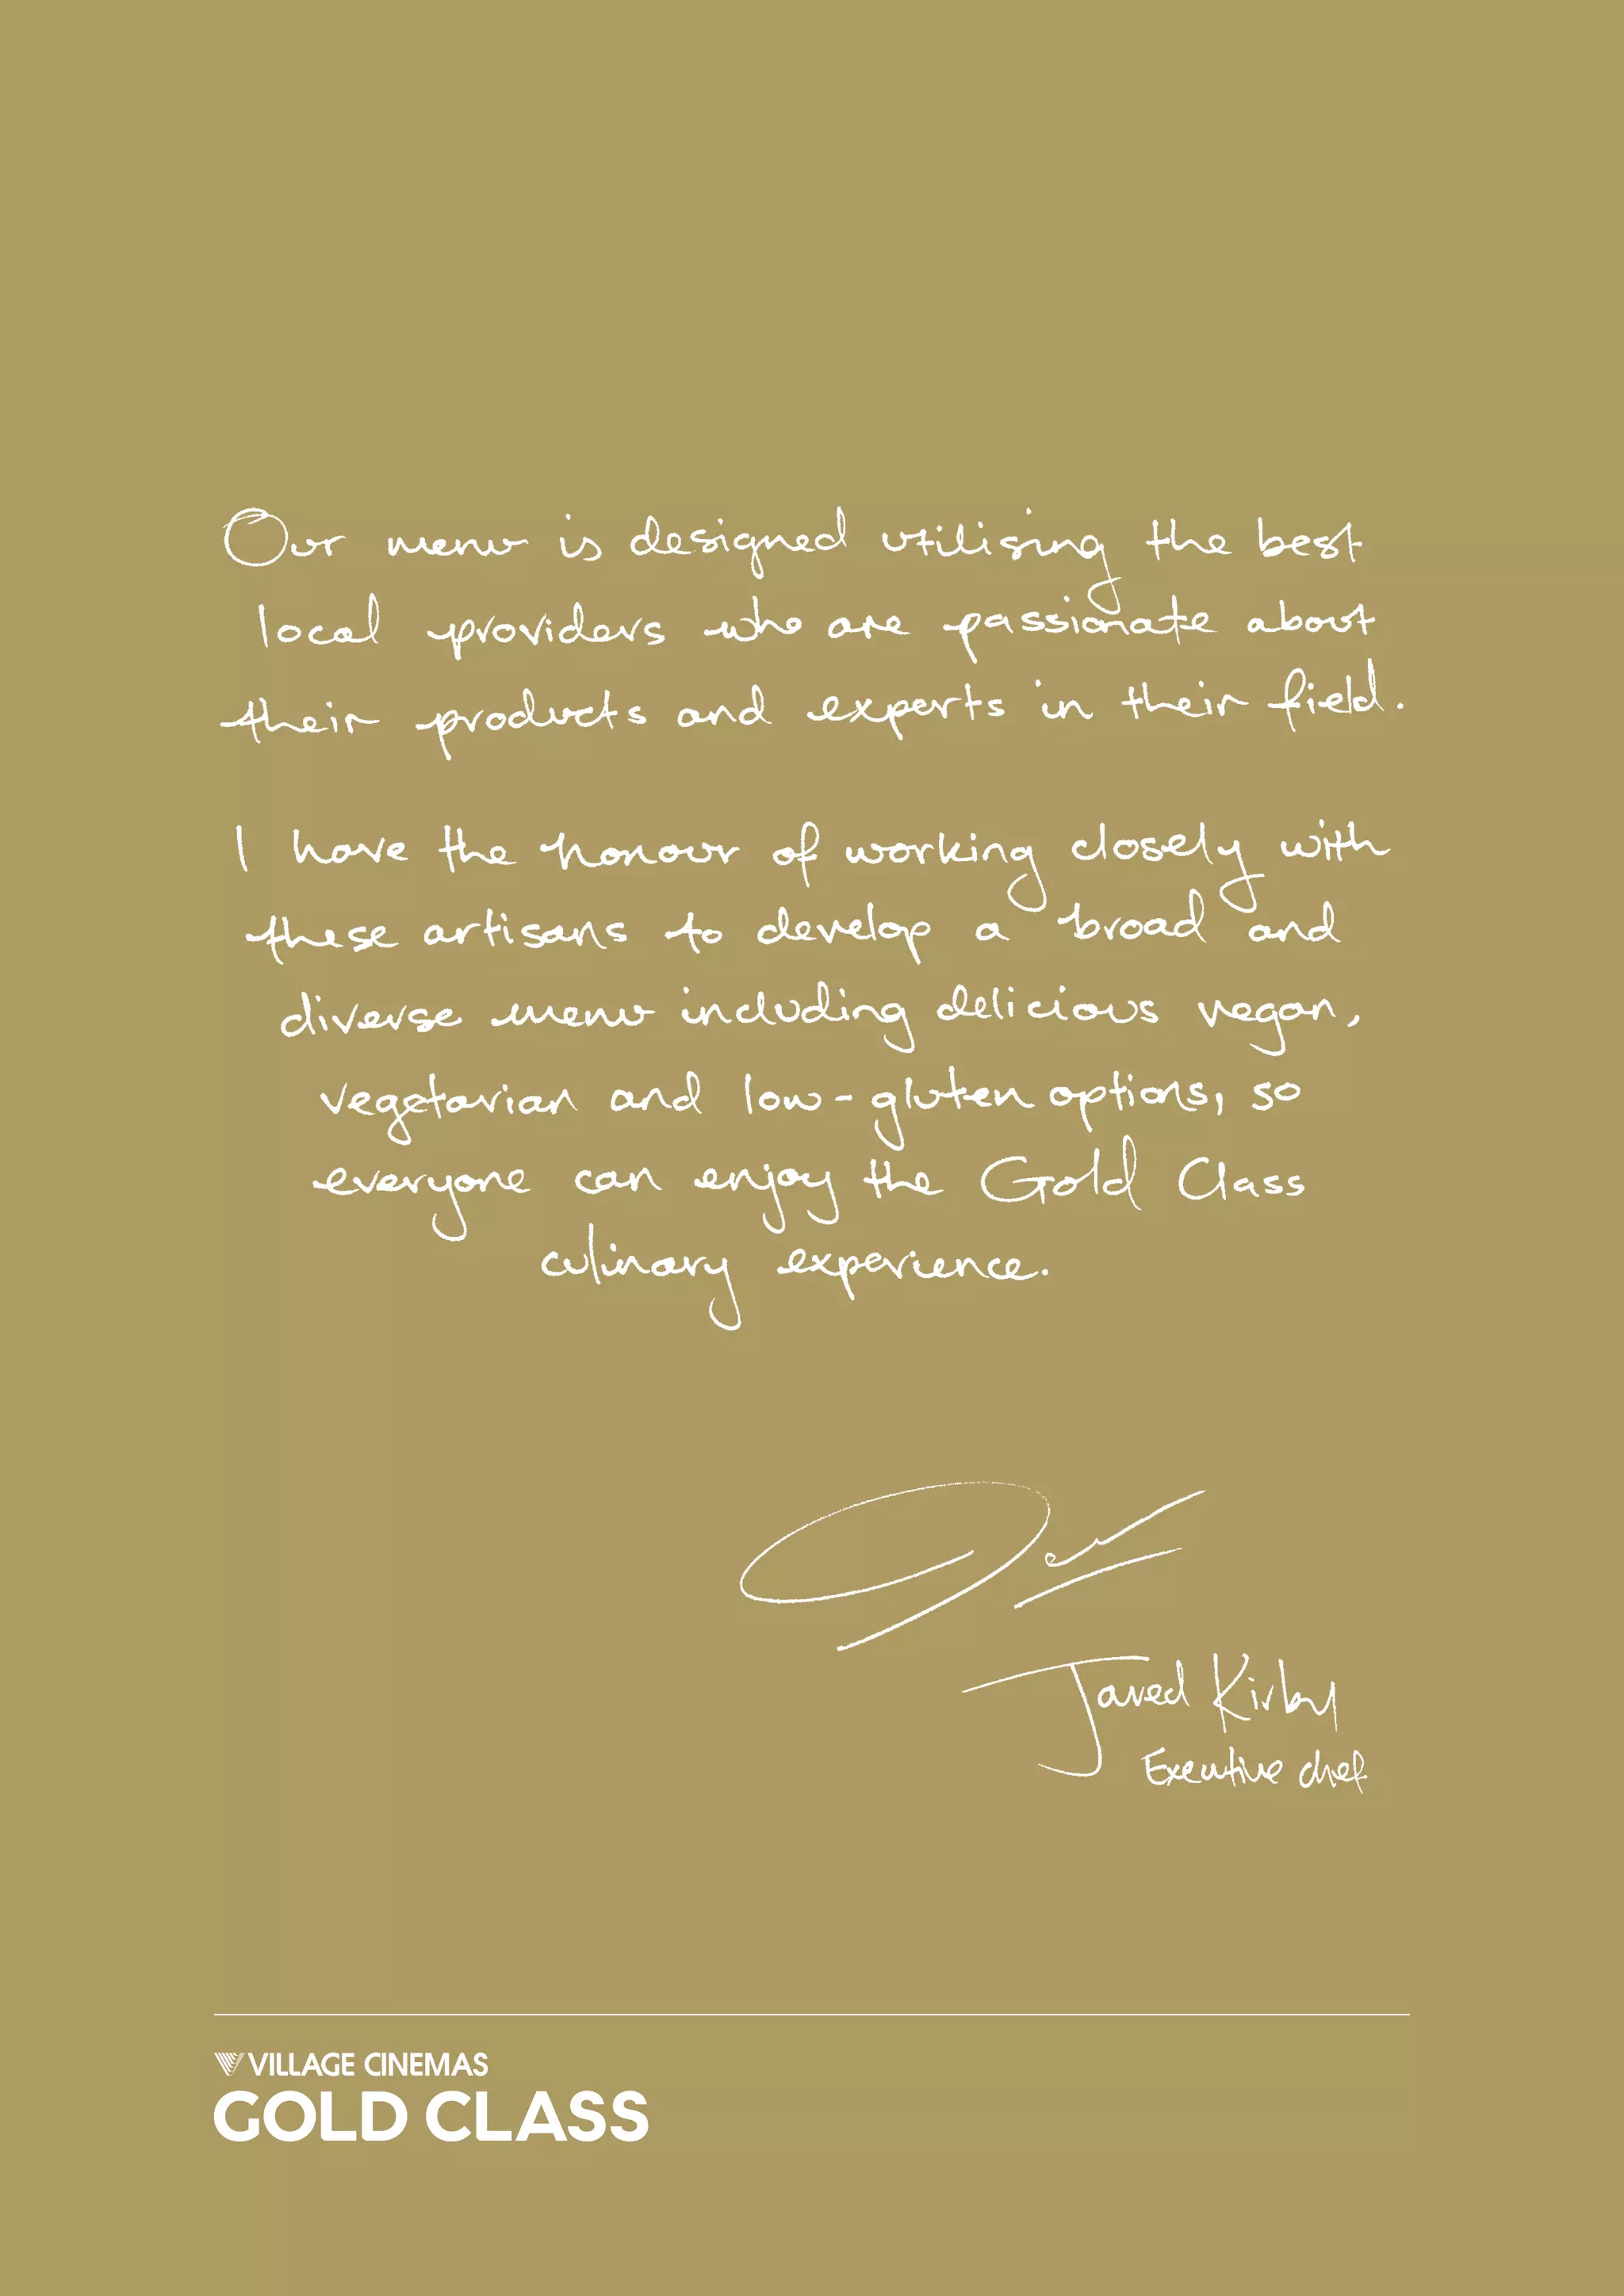 Our menu is designed utilising the best
local providers who are passionate about
their products and experts in their field.
I have the honour of working closely with
these artisans to develop a broad and
diverse menu including delicious vegan,
vegetarian and low-gluten options, so
everyone can enjoy the Gold Class
culinary experience.
Jared Kirby
Executive chef
VILLAGE CINEMAS
GOLD CLASS